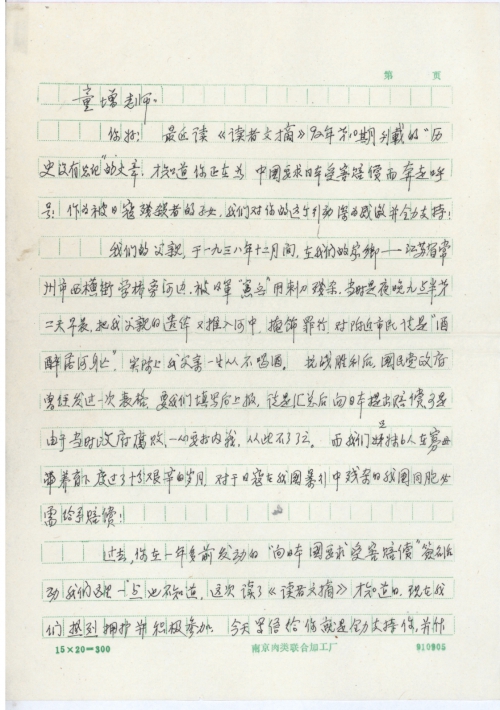 第　页
童增老师：
你好！最近读《读者文摘》92年第10期刊载的“历
史没有忘记”的文章，才知道你正在为中国要求日本受害赔偿而奔走呼
号！作为被日寇残杀者的子女，我们对你的这个行动深为感激并全力支持！
我们的父亲，于一九三八年十二月间，在我们的家乡——江苏省常
州市西横街学桥旁河边，被日军“宪兵”用刺刀残杀，当时是夜晚九点半，第
二天早晨，把我父亲的遗体又推入河中，掩饰罪行，对附近市民说是“酒
醉落河身亡”，实际上我父亲一生从不喝酒。抗战胜利后，国民党政府
曾经发过一次表格，要我们填写后上报，说是汇总后向日本提出赔偿，可是
由于当时政府腐败，一心要打内战，从此不了了之。而我们兄妹6人在寡母
带养育下，度过了十分艰辛的岁月，对于日寇在我国暴行中残杀的我国同胞必
需给予赔偿！
过去，你在一年多前发动的“向日本国要求受害赔偿”签名活
动我们这里一点也不知道，这次读了《读者文摘》才知道的，现在我
们热烈拥护并积极参加。今天写信给你就是全力支持你，并作
15×20=300　南京肉类联合加工厂　910905